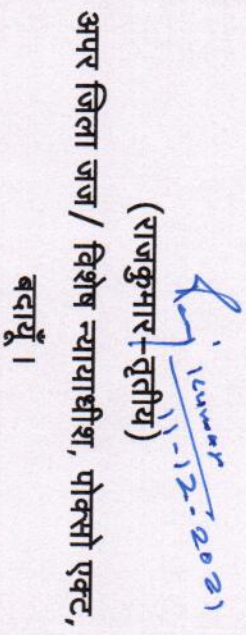 Raj Kumar
11-12-2021
(राजकुमार-तृतीय)
अपर जिला जज/ विशेष न्यायाधीश, पोक्सो एक्ट,
बदायूँ।